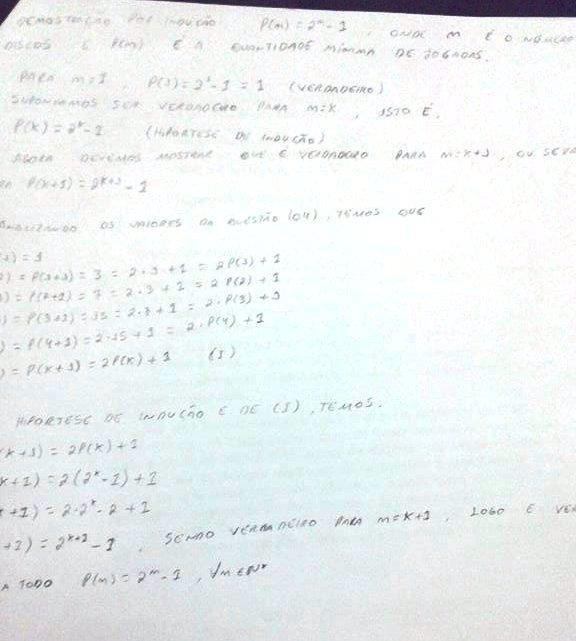 DEMOSTRAÇÃO POR INDUÇÃO P(m) = 2^m - 1 , ONDE m É O NÚMERO
DISCOS E P(m) É A QUANTIDADE MÍNIMA DE JOGADAS.
PARA m=1 , P(1) = 2^1 - 1 = 1 (VERDADEIRO)
SUPONHAMOS SER VERDADEIRO PARA m=K , ISTO É,
P(K) = 2^K - 1 (HIPÓRTESE DE INDUÇÃO)
AGORA DEVEMOS MOSTRAR QUE É VERDADEIRO PARA m=K+1, OU SEJA
P(K+1) = 2^{K+1} - 1
OS VALORES DA QUESTÃO (04), TEMOS QUE
) = 1
) = P(1+1) = 3 = 2·1+1 = 2P(1)+1
) = P(2+1) = 7 = 2·3+1 = 2P(2)+1
) = P(3+1) = 15 = 2·7+1 = 2·P(3)+1
) = P(4+1) = 2·15+1 = 2·P(4)+1
) = P(K+1) = 2P(K)+1 (I)
HIPÓRTESE DE INDUÇÃO E DE (I), TEMOS.
(K+1) = 2P(K)+1
K+1) = 2(2^K-1)+1
+1) = 2·2^K-2+1
+1) = 2^{K+1}-1 , SENDO VERDADEIRO PARA m=K+1 , LOGO É VER
A TODO P(m) = 2^m - 1 , ∀m∈N*